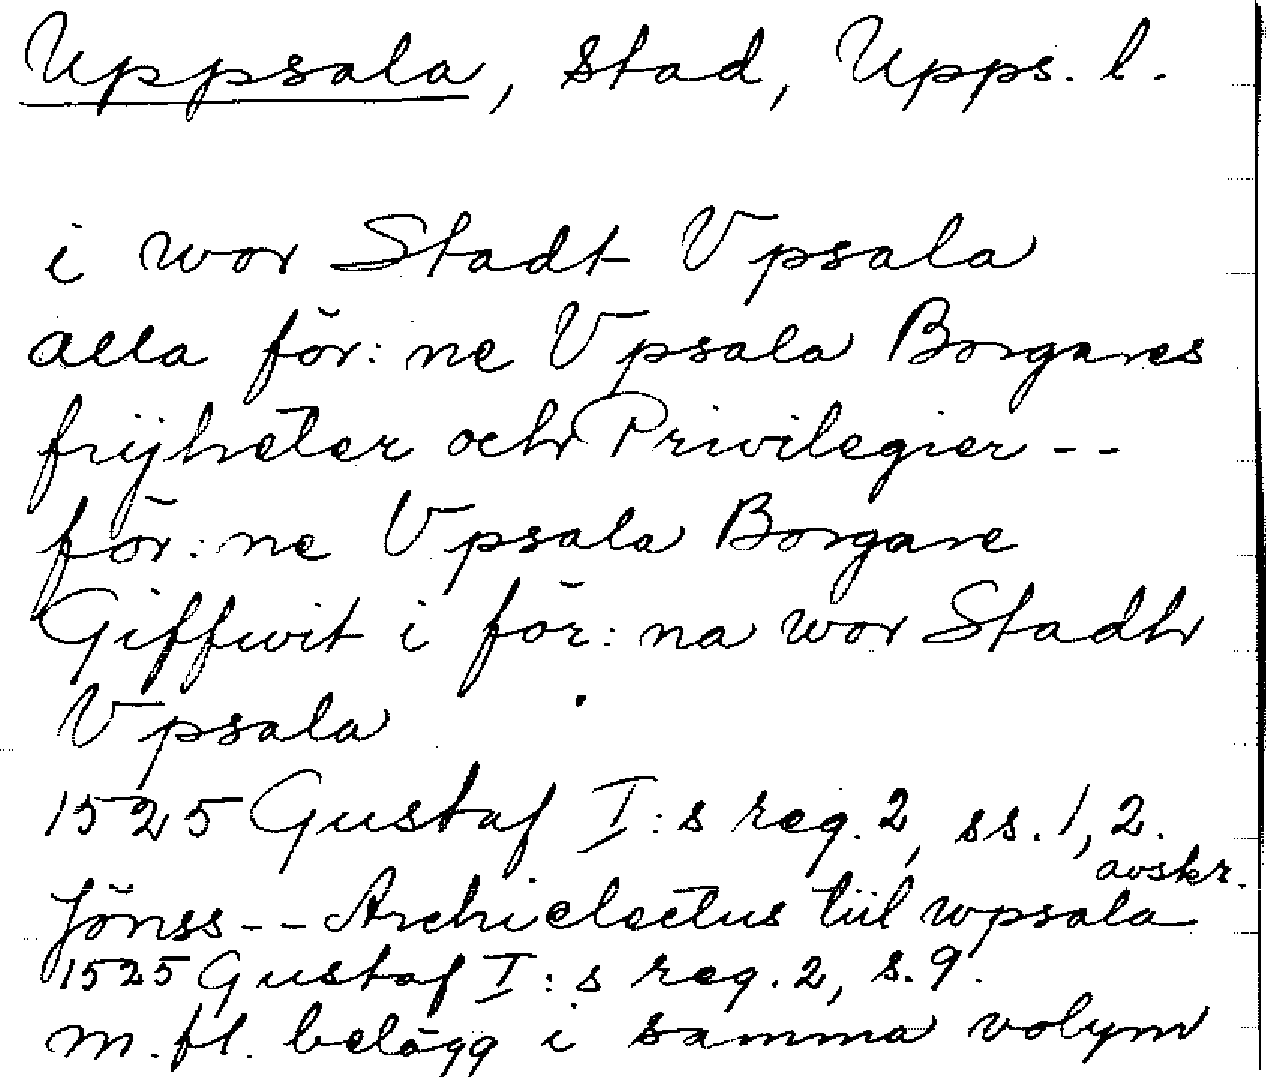 Uppsala, stad, Upps. l.
i wor Stadt Vpsala
alla för: ne Vpsala Borgares
frijheter och Privilegier --
för: ne Vpsala Borgare
Giffwit i för: na wor Stadh
Vpsala
1525 Gustaf I:s reg. 2, ss. 1, 2.
avskr.
Jönss -- Archielectus tiil wpsala
1525 Gustaf I:s reg. 2, s. 9.
m. fl. belägg i samma volym